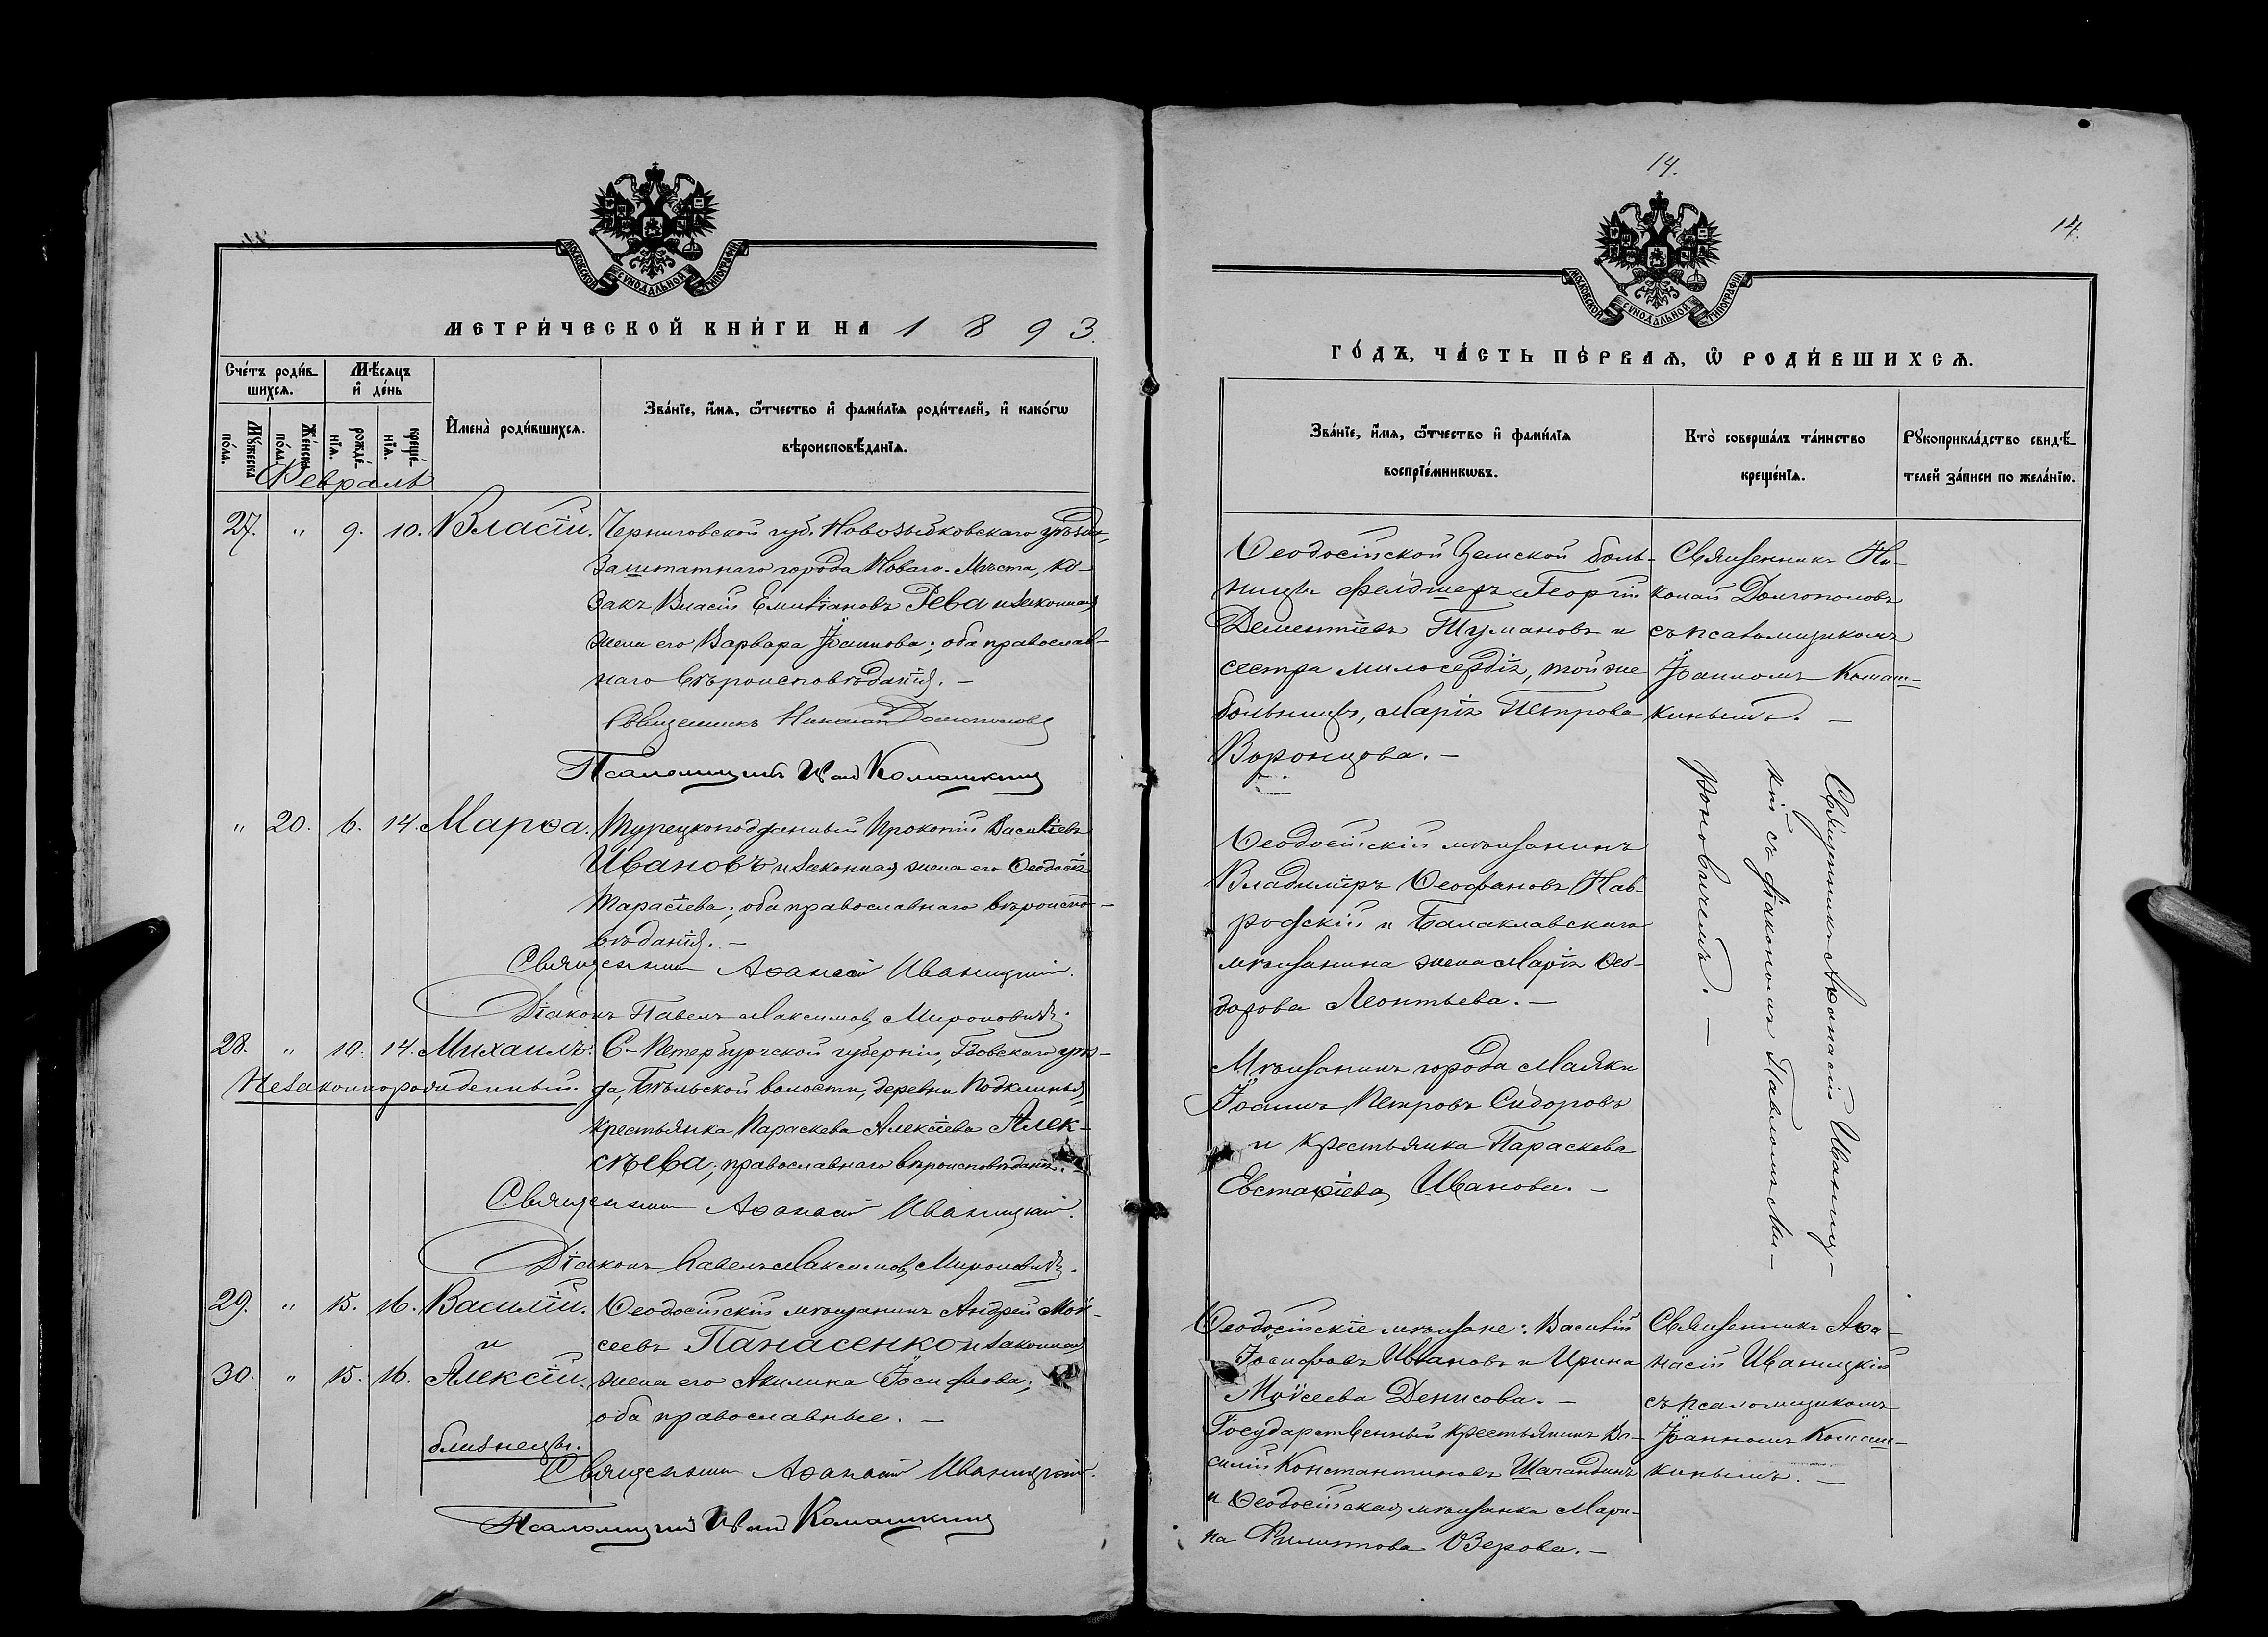 14.
14.
МОСКОВСКОЙ СѴНОДАЛЬНОЙ ТИПОГРАФІИ
МЕТРИ́ЧЕСКОЙ КНИ́ГИ НА 1893.
Сче́тъ роди́в-
шихсѧ.
Мѣ́сѧцъ
и҆ де́нь
Мꙋ́жеска
по́ла.
Же́нска
по́ла.
рожде́-
нїѧ.
креще́-
нїѧ.
И҆мена̀ роди́вшихсѧ.
Зва́нїе, и҆́мѧ, ѻ҆́тчество и҆ фами́лїѧ роди́телей, и҆ како́гѡ
вѣроисповѣ́данїѧ.
Февраль
27. " 9. 10. Власій. Черниговской губ. Новозыбковскаго уѣзда,
Заштатнаго города Новаго-Мѣста, ко-
закъ Власій Емиліановъ Рева и законная
жена его Варвара Іоаннова; оба православ-
наго вѣроисповѣданія. –
Священникъ Николай Долгополовъ
Псаломщикъ Иван Комашкинъ
" 20. 6. 14. Марѳа. Турецкоподданный Прокопій Васильевъ
Ивановъ и законная жена его Ѳеодосія
Тарасіева; оба православнаго вѣроиспо-
вѣданія. –
Священник Аѳанасій Иваницкій.
Діаконъ Павелъ Максимовъ Мироновичъ.
28. " 10. 14. Михаилъ. С-Петербургской губерніи, Гдовскаго уѣз-
Незаконнорожденный. да, Бѣльской волости, деревни Подклинья,
крестьянка Параскева Алексіева Алек-
сѣева; православнаго вѣроисповѣданія. –
Священник Аѳанасій Иваницкій.
Діаконъ Павелъ Максимовъ Мироновичъ.
29. " 15. 16. Василій. Ѳеодосійскій мѣщанинъ Андрей Мой-
и сеевъ Панасенко и законная
30. " 15. 16. Алексій. жена его Акилина Іосифова;
оба православные. –
близнецы.
Священник Аѳанасій Иваницкій.
Псаломщикъ Иван Комашкинъ
МОСКОВСКОЙ СѴНОДАЛЬНОЙ ТИПОГРАФІИ
ГО́ДЪ, ЧА́СТЬ ПЕ́РВАѦ, Ѽ РОДИ́ВШИХСѦ.
Зва́нїе, и҆́мѧ, ѻ҆́тчество и҆ фами́лїѧ
воспрїе́мникѡвъ.
Кто̀ соверша́лъ та́инство
креще́нїѧ.
Рꙋкоприкла́дство свидѣ́-
телей за́писи по жела́нїю.
Ѳеодосійской Земской боль-
ницы фельдшеръ Георгій
Дементіевъ Тумановъ и
сестра милосердія, той же
больницы, Марія Петрова
Воронцова. –
Священникъ Ни-
колай Долгополовъ
съ псаломщикомъ
Іоанномъ Комаш-
кинымъ. –
Ѳеодосійскій мѣщанинъ
Владиміръ Ѳеофановъ Нав-
родскій и Балаклавскаго
мѣщанина жена Марія Ѳео-
дорова Леонтьева. –
Священникъ Аѳанасій Иваниц-
кій съ діакономъ Павломъ Ми-
роновичемъ. –
Мѣщанинъ города Маяки
Іоаннъ Петровъ Сидоровъ
и крестьянка Параскева
Евстафіева Иванова. –
Ѳеодосійскіе мѣщане: Василій
Іосифовъ Ивановъ и Ирина
Мойсеева Денисова. –
Государственный крестьянинъ Ва-
силій Константиновъ Шагандинъ
и Ѳеодосійская мѣщанка Мари-
на Филиппова Озерова. –
Священникъ Аѳа-
насій Иваницкій
съ псаломщикомъ
Іоанномъ Комаш-
кинымъ. –